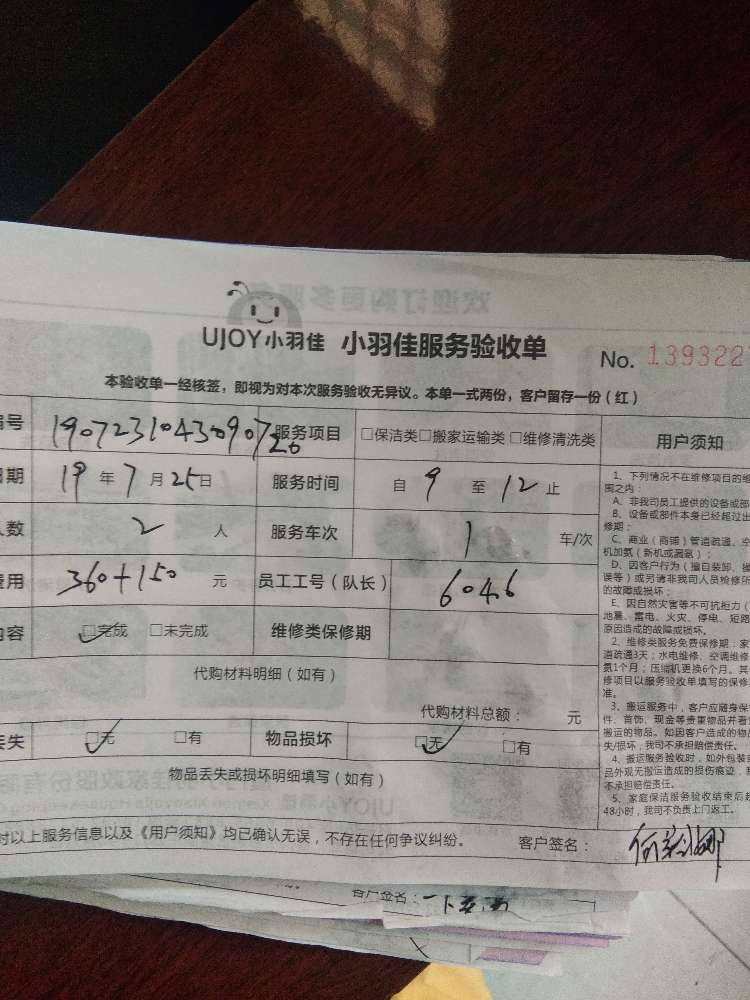 UJOY小羽佳 小羽佳服务验收单 No. 1393222
本验收单一经核签，即视为对本次服务验收无异议。本单一式两份，客户留存一份（红）
号 1907231043090720 服务项目 □保洁类□搬家运输类□维修清洗类 用户须知
期 19年7月25日 服务时间 自9至12止
人数 2人 服务车次 1 车/次
费用 360+150 元 员工工号（队长） 6046
内容 ☑完成 □未完成 维修类保修期
代购材料明细（如有）
代购材料总额： 元
丢失 ☑无 □有 物品损坏 ☑无 □有
物品丢失或损坏明细填写（如有）
对以上服务信息以及《用户须知》均已确认无误，不存在任何争议纠纷。 客户签名：
1、下列情况不在维修项目的维
围之内：
A、非我司员工提供的设备或部
B、设备或部件本身已经超过出
修期；
C、商业（商铺）管道疏通、空
机加氨（新机或漏氨）；
D、因客户行为（擅自装卸、操
误等）或另请非我司人员检修所
的故障或损坏；
E、因自然灾害等不可抗拒力（
地震、雷电、火灾、停电、短路
原因造成的故障或损坏。
2、维修类服务免费保修期：家
道疏通3天；水电维修、空调维修
氨1个月；压缩机更换6个月。其
修项目以服务验收单填写的保修
准。
3、搬运服务中，客户应随身保
件、首饰、现金等贵重物品并看
搬运的物品。如因客户造成的物
失/损坏，我司不承担赔偿责任。
4、搬运服务验收时，如外包装
品外观无搬运造成的损伤痕迹，
不承担赔偿责任。
5、家庭保洁服务验收结束后超
48小时，我司不负责上门返工。
客户签名：